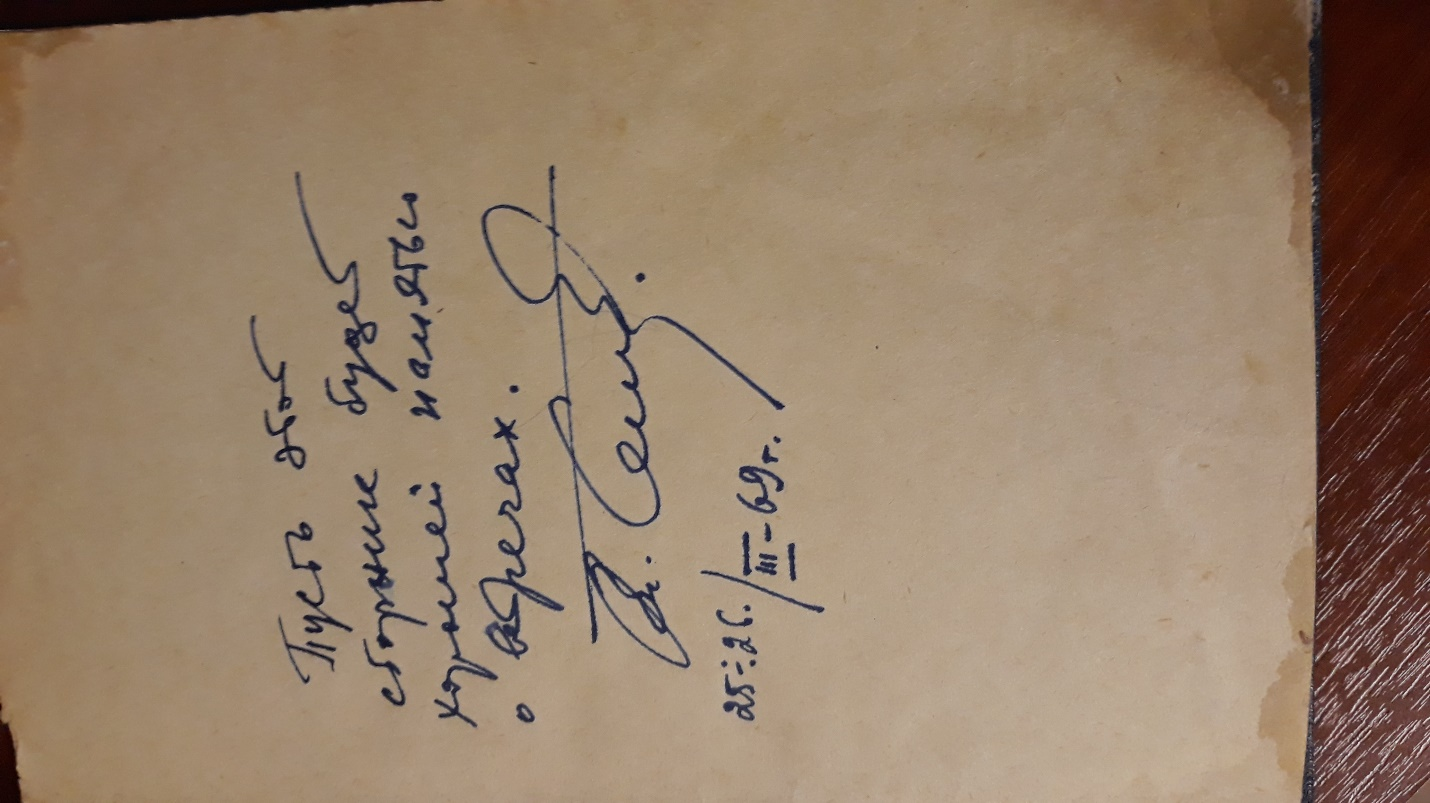 Пусть этот
сборник будет
хорошей памятью
о встречах.
25÷26./III–69г.